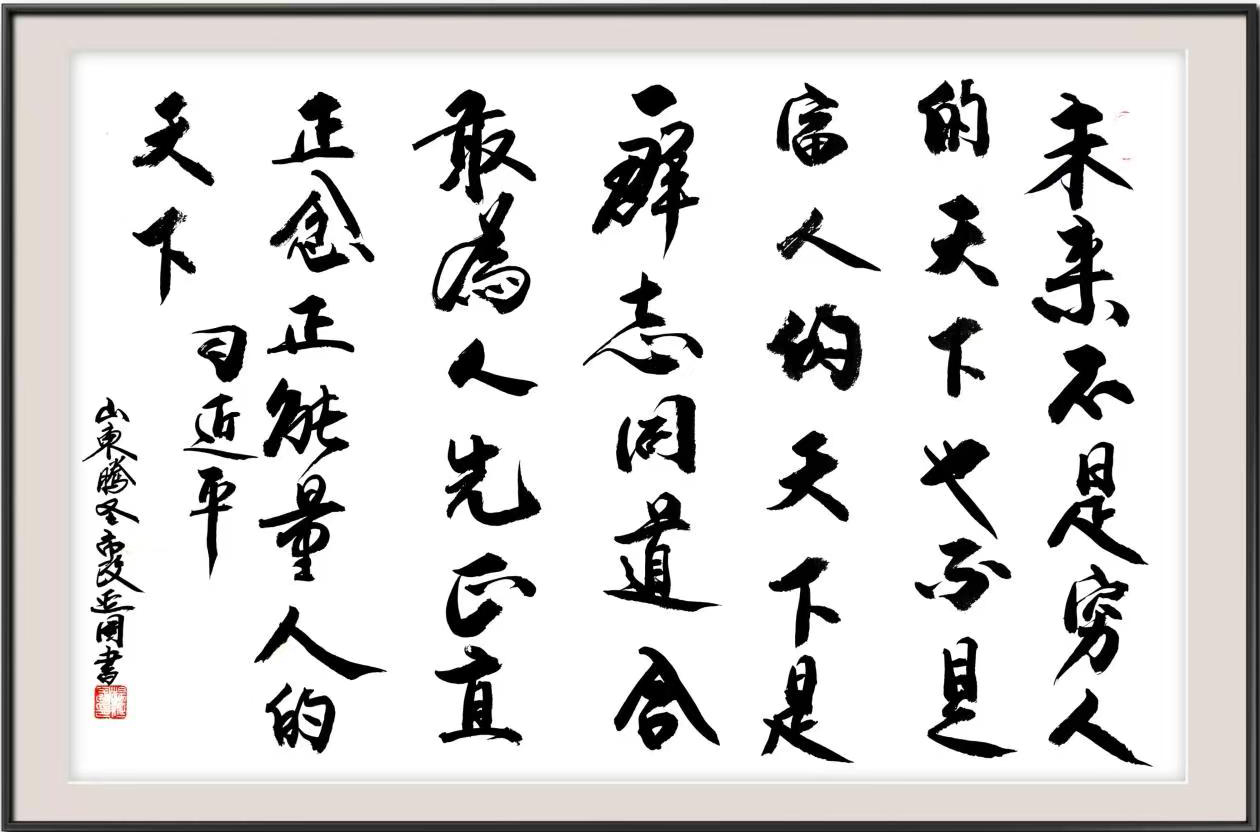 未来不是穷人
的天下也不是
富人的天下是
一群志同道合
敢為人先正直
正念正能量人的
天下
习近平
山東腾冬書